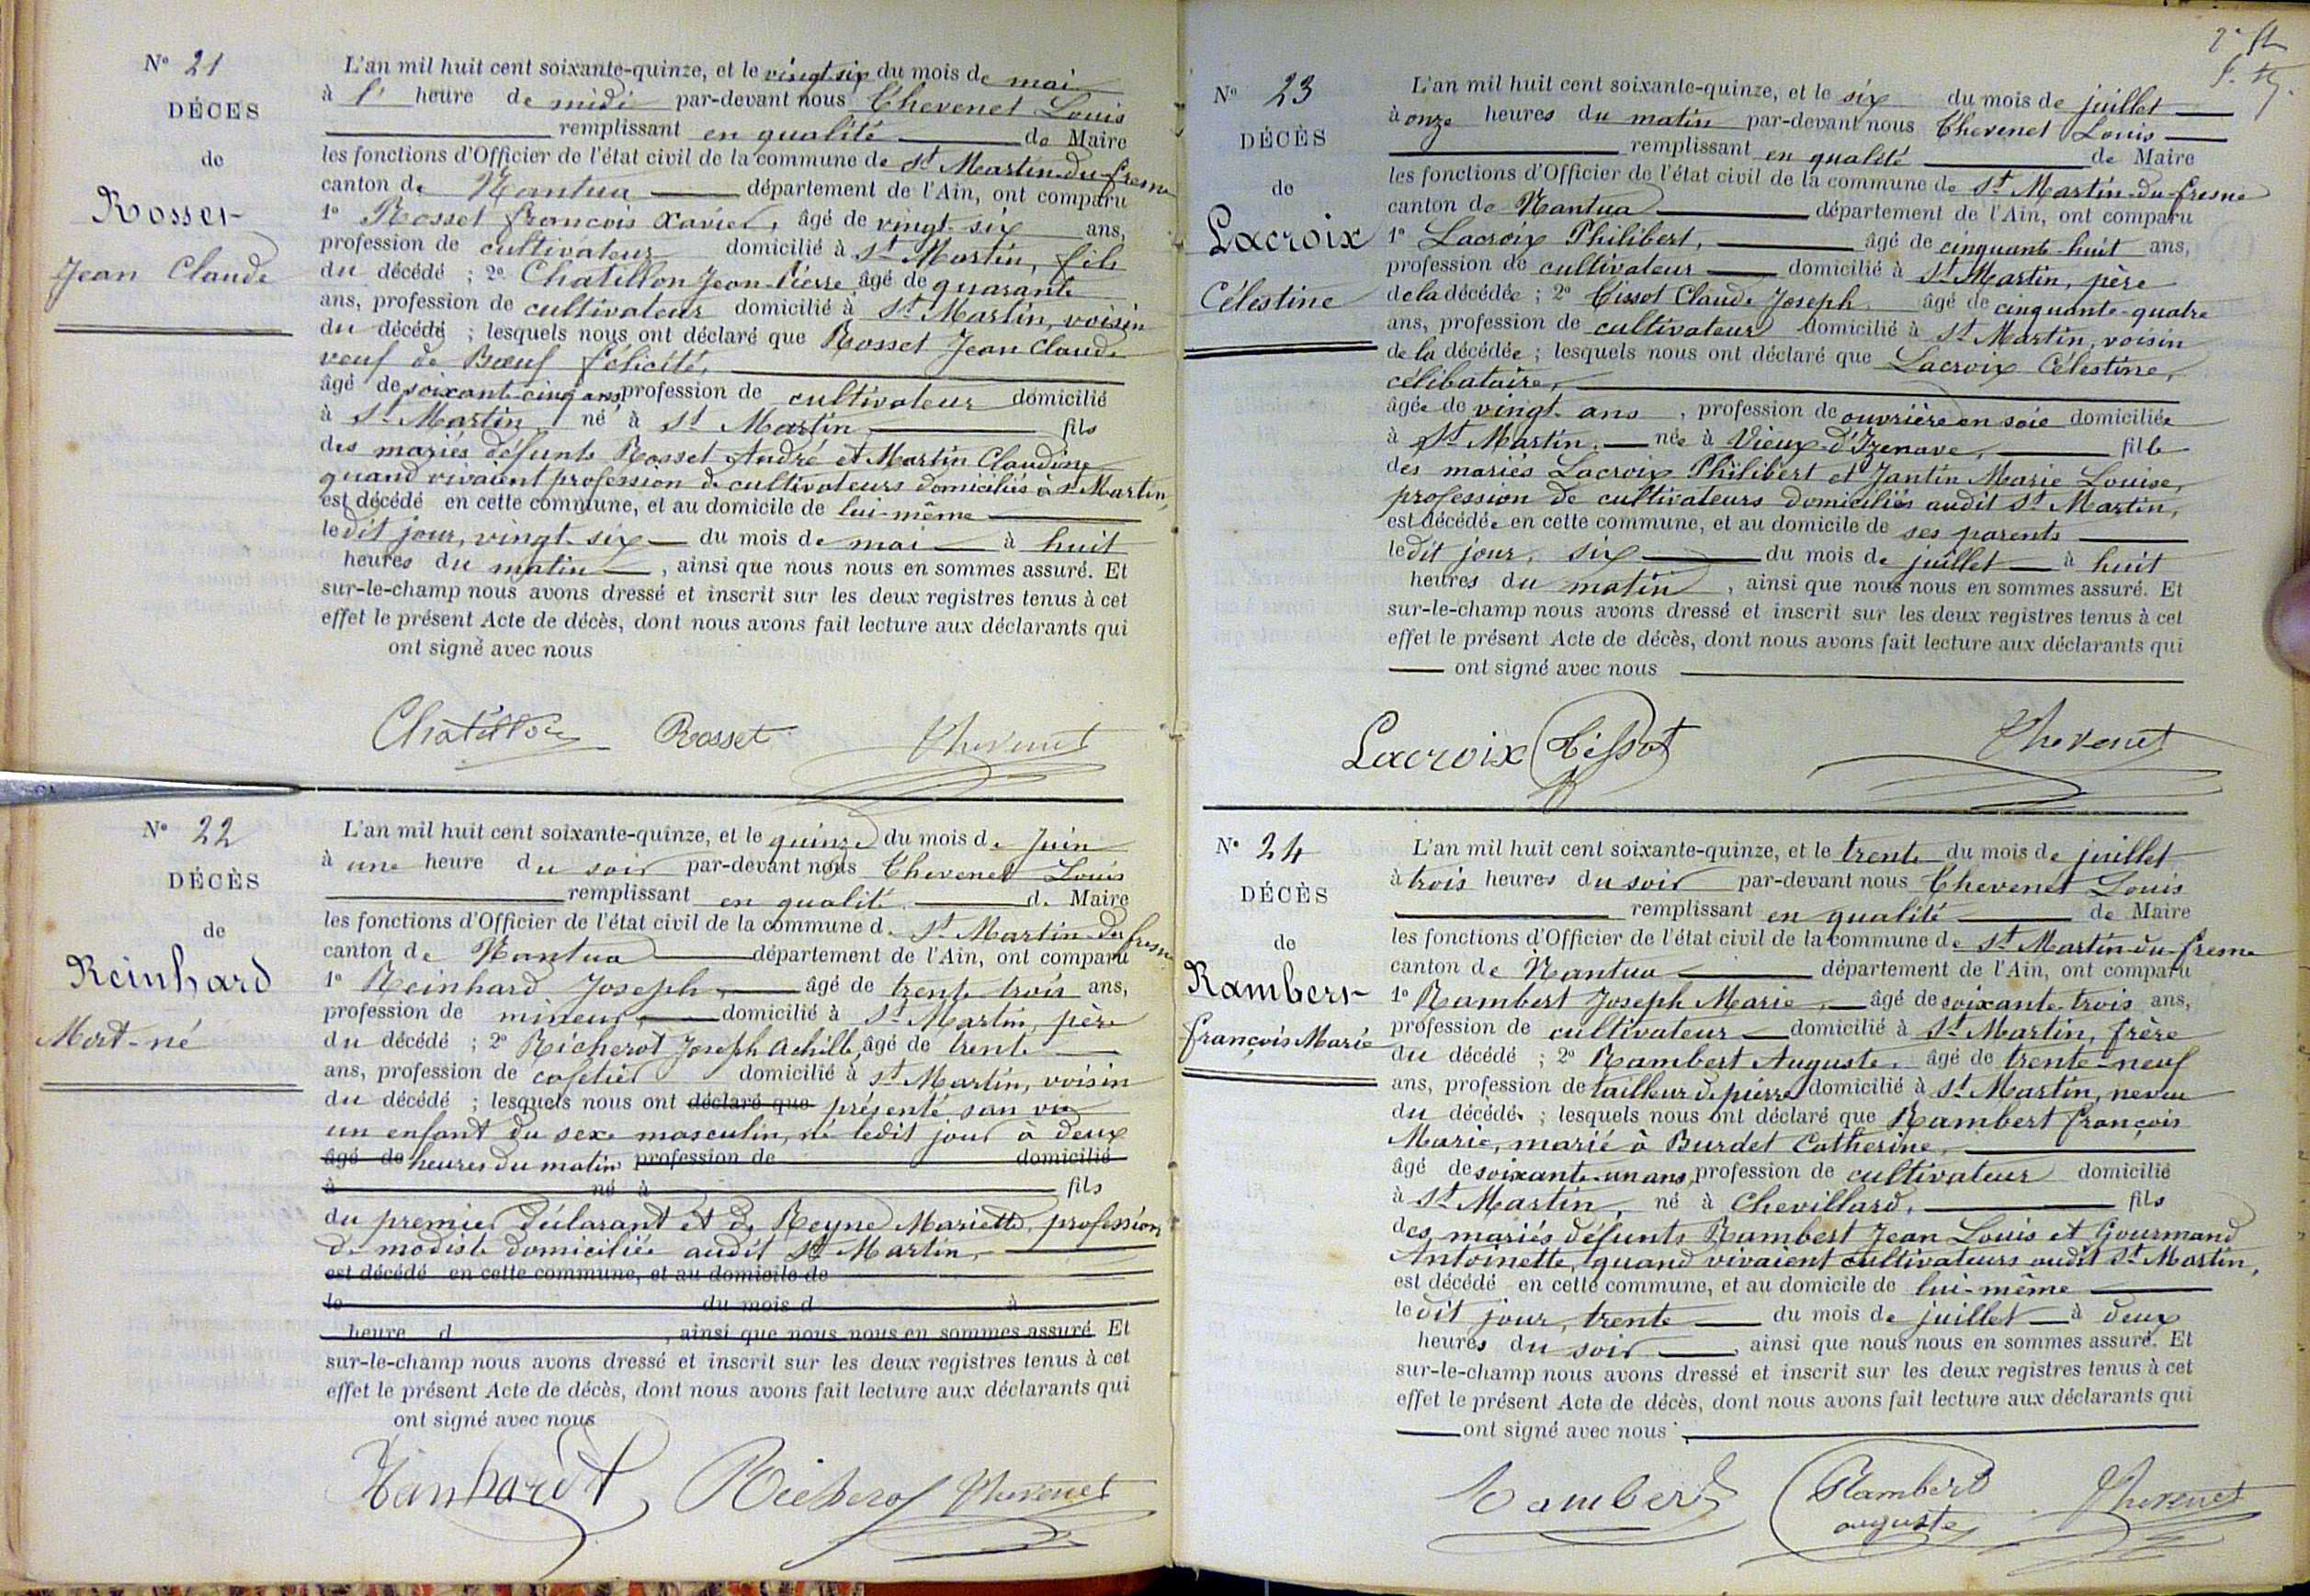 N° 21
DÉCES
de
Rosset
Jean Claude
L'an mil huit cent soixante-quinze, et le vingt six du mois de mai
à l' heure de midi par-devant nous Thevenet Louis
remplissant en qualité de Maire
les fonctions d'Officier de l'état civil de la commune de St Martin-du-fresne
canton de Nantua département de l'Ain, ont comparu
1° Rosset françois Xavier, âgé de vingt-six ans,
profession de cultivateur domicilié à St Martin, fils
du décédé ; 2° Chatillon Jean-Pierre, âgé de quarante
ans, profession de cultivateur domicilié à St Martin, voisin
du décédé ; lesquels nous ont déclaré que Rosset Jean Claude
veuf de Bœuf félicité,
âgé de soixante-cinq ans, profession de cultivateur domicilié
à St Martin, né à St Martin fils
des mariés défunts Rosset André et Martin Claudine
quand vivaient profession de cultivateurs domiciliés à St Martin,
est décédé en cette commune, et au domicile de lui-même
le dit jour, vingt-six du mois de mai à huit
heures du matin, ainsi que nous nous en sommes assuré. Et
sur-le-champ nous avons dressé et inscrit sur les deux registres tenus à cet
effet le présent Acte de décès, dont nous avons fait lecture aux déclarants qui
ont signé avec nous
Chatillon Rosset Thevenet
N° 22
DÉCÈS
de
Reinhard
Mort-né
L'an mil huit cent soixante-quinze, et le quinze du mois de Juin
à une heure du soir par-devant nous Thevenet Louis
remplissant en qualité de Maire
les fonctions d'Officier de l'état civil de la commune de St Martin-du fresne
canton de Nantua département de l'Ain, ont comparu
1° Reinhard Joseph, âgé de trente trois ans,
profession de mineur, domicilié à St Martin, père
du décédé ; 2° Richerot Joseph Achille, âgé de trente
ans, profession de cafetier domicilié à St Martin, voisin
du décédé ; lesquels nous ont déclaré que présenté san vie
un enfant du sexe masculin, né ledit jour à deux
âgé de heures du matin profession de domicilié
à né à fils
du premier déclarant et de Reyne Mariette, profession
de modiste domiciliée audit St Martin,
est décédé en cette commune, et au domicile de
le du mois d à
heure d , ainsi que nous nous en sommes assuré Et
sur-le-champ nous avons dressé et inscrit sur les deux registres tenus à cet
effet le présent Acte de décès, dont nous avons fait lecture aux déclarants qui
ont signé avec nous
Richerot Thevenet
N° 23
DÉCÈS
de
Lacroix
Célestine
L'an mil huit cent soixante-quinze, et le six du mois de juillet
à onze heures du matin par-devant nous Thevenet Louis
remplissant en qualité de Maire
les fonctions d'Officier de l'état civil de la commune de St Martin-du-fresne
canton de Nantua département de l'Ain, ont comparu
1° Lacroix Philibert, âgé de cinquante-huit ans,
profession de cultivateur domicilié à St Martin, père
de la décédée ; 2° Tissot Claude Joseph âgé de cinquante-quatre
ans, profession de cultivateur domicilié à St Martin, voisin
de la décédée ; lesquels nous ont déclaré que Lacroix Célestine,
célibataire,
âgée de vingt ans, profession de ouvrière en soie domiciliée
à St Martin, née à Vieux d'Izenave, fille
des mariés Lacroix Philibert et Jantin Marie Louise,
profession de cultivateurs domiciliés audit St Martin,
est décédée en cette commune, et au domicile de ses parents
le dit jour, six du mois de juillet à huit
heures du matin, ainsi que nous nous en sommes assuré. Et
sur-le-champ nous avons dressé et inscrit sur les deux registres tenus à cet
effet le présent Acte de décès, dont nous avons fait lecture aux déclarants qui
ont signé avec nous
Lacroix Tissot Thevenet
N° 24
DÉCÈS
de
Rambert
françois Marie
L'an mil huit cent soixante-quinze, et le trente du mois de juillet
à trois heures du soir par-devant nous Thevenet Louis
remplissant en qualité de Maire
les fonctions d'Officier de l'état civil de la commune de St Martin-du-fresne
canton de Nantua département de l'Ain, ont comparu
1° Rambert Joseph Marie, âgé de soixante-trois ans,
profession de cultivateur domicilié à St Martin, frère
du décédé ; 2° Rambert Auguste, âgé de trente-neuf
ans, profession de tailleur de pierre domicilié à St Martin, neveu
du décédé ; lesquels nous ont déclaré que Rambert françois
Marie, marié à Burdet Catherine,
âgé de soixante-un ans, profession de cultivateur domicilié
à St Martin, né à Chevillard, fils
des mariés défunts Rambert Jean Louis et Gourmand
Antoinette, quand vivaient cultivateurs audit St Martin,
est décédé en cette commune, et au domicile de lui-même
le dit jour, trente du mois de juillet à deux
heures du soir, ainsi que nous nous en sommes assuré. Et
sur-le-champ nous avons dressé et inscrit sur les deux registres tenus à cet
effet le présent Acte de décès, dont nous avons fait lecture aux déclarants qui
ont signé avec nous
Rambert Rambert auguste Thevenet